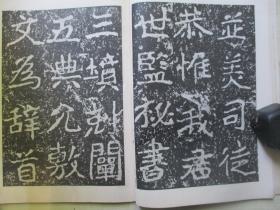 並美司徒
恭惟我君
世監秘書
三墳剖闡
五典允敷
文為辭首